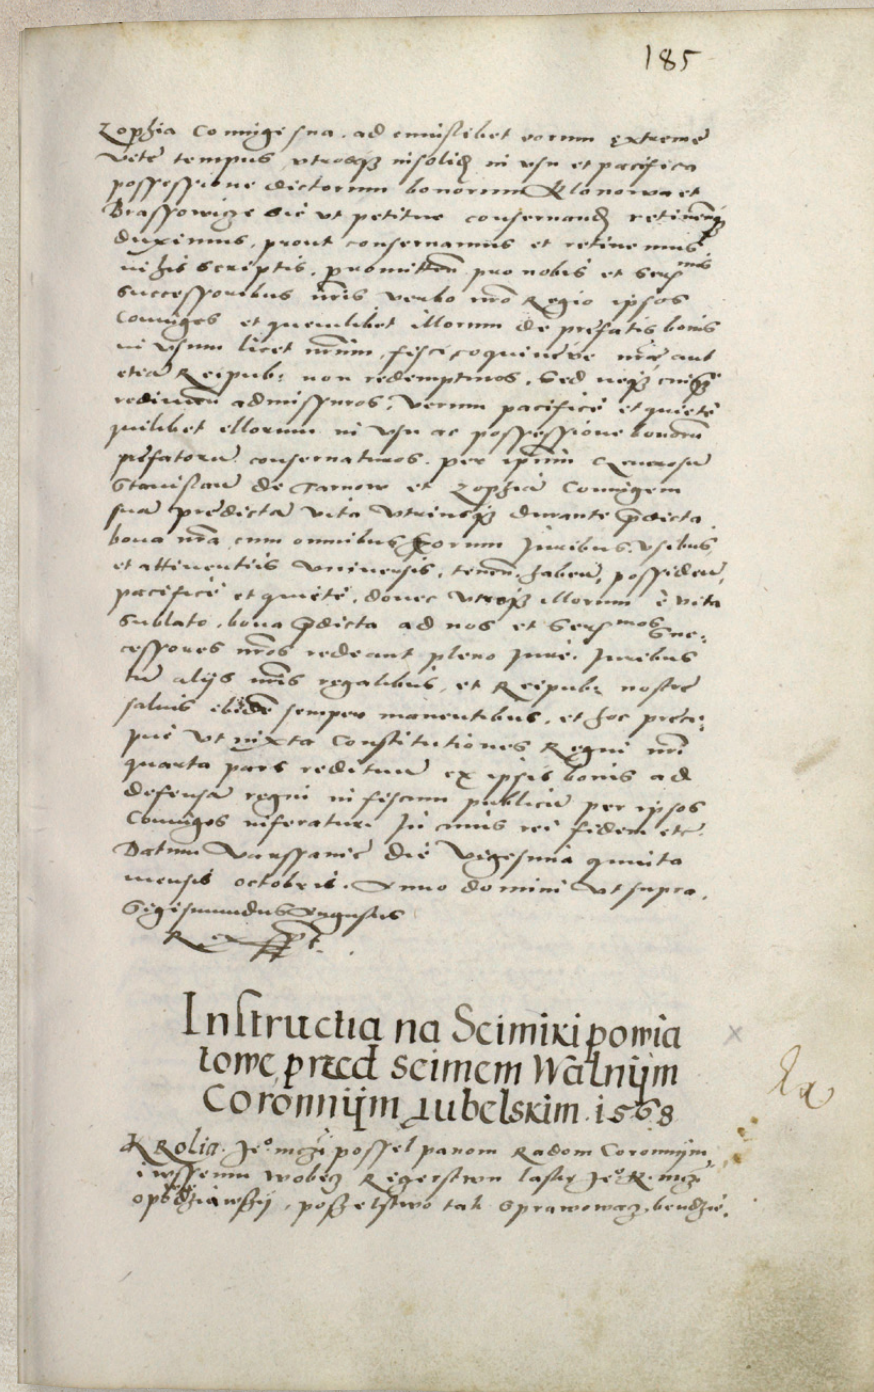 185
Zophia Coniugẽ sua. ad cuiuslibet eorum extreme
vite tempus, utrosq3 insolid in usu et pacifica
possessione dictorum bonorum Klonowa et
Brassowicze sic ut petitur conservand retinen
duximus, prout conservamus et retinemus
in his scriptis. promitten pro nobis et Serenmis
successoribus nris verbo nro Regio ipsos
Coniuges et quemlibet illorum de prefatis bonis
in usum licet nrum, fisci coquineve nre aut
etia Reipub: non redempturos. Sed neq3 cuiq3
redimen admissuros, Verum pacifice et quiete
quilibet illorum in usu ac possessione bonorum
prefatoru conservaturos. per ipsum Generosu
Stanislau de Tarnow et Zophia Coniugem
sua predicta vita utriusq3 durante pdicta
bona nra cum omnibus eorum Juribus, usibus,
et attinentiis universis, tenen. haben, possiden,
pacifice et quiete, donec utroq3 illorum e vita
sublato, bona pdicta ad nos et Serenmos Suc=
cessores nros redeant pleno Jure. Juribus
tn alijs nris regalibus, et Reipub: nostre
salvis ibidem semper manentibus, et hoc preci=
pue ut iuxta Constitutiones Regni nri
quarta pars redituu ex ipsis bonis ad
defensa regni in fiscum publicu per ipsos
Coniuges inferatur. In cuius rei fidem etc
Datum Varssavie die Vigesima quinta
mensis octobris. Anno domini ut supra.
Sigismundus Augustus
Rex sspt.
Instructia na Seimiki powia
towe, przed seimem Walnÿm
Coronnÿm Lubelskim. 1568
Krolia Jeo. mczi possel panom Radom Coronnÿm,
i wssem wobecz Rÿcerstwu laske Jeo. K. mczi
opowiedziawszÿ, poszelstwo tak sprawowacz bendzie.